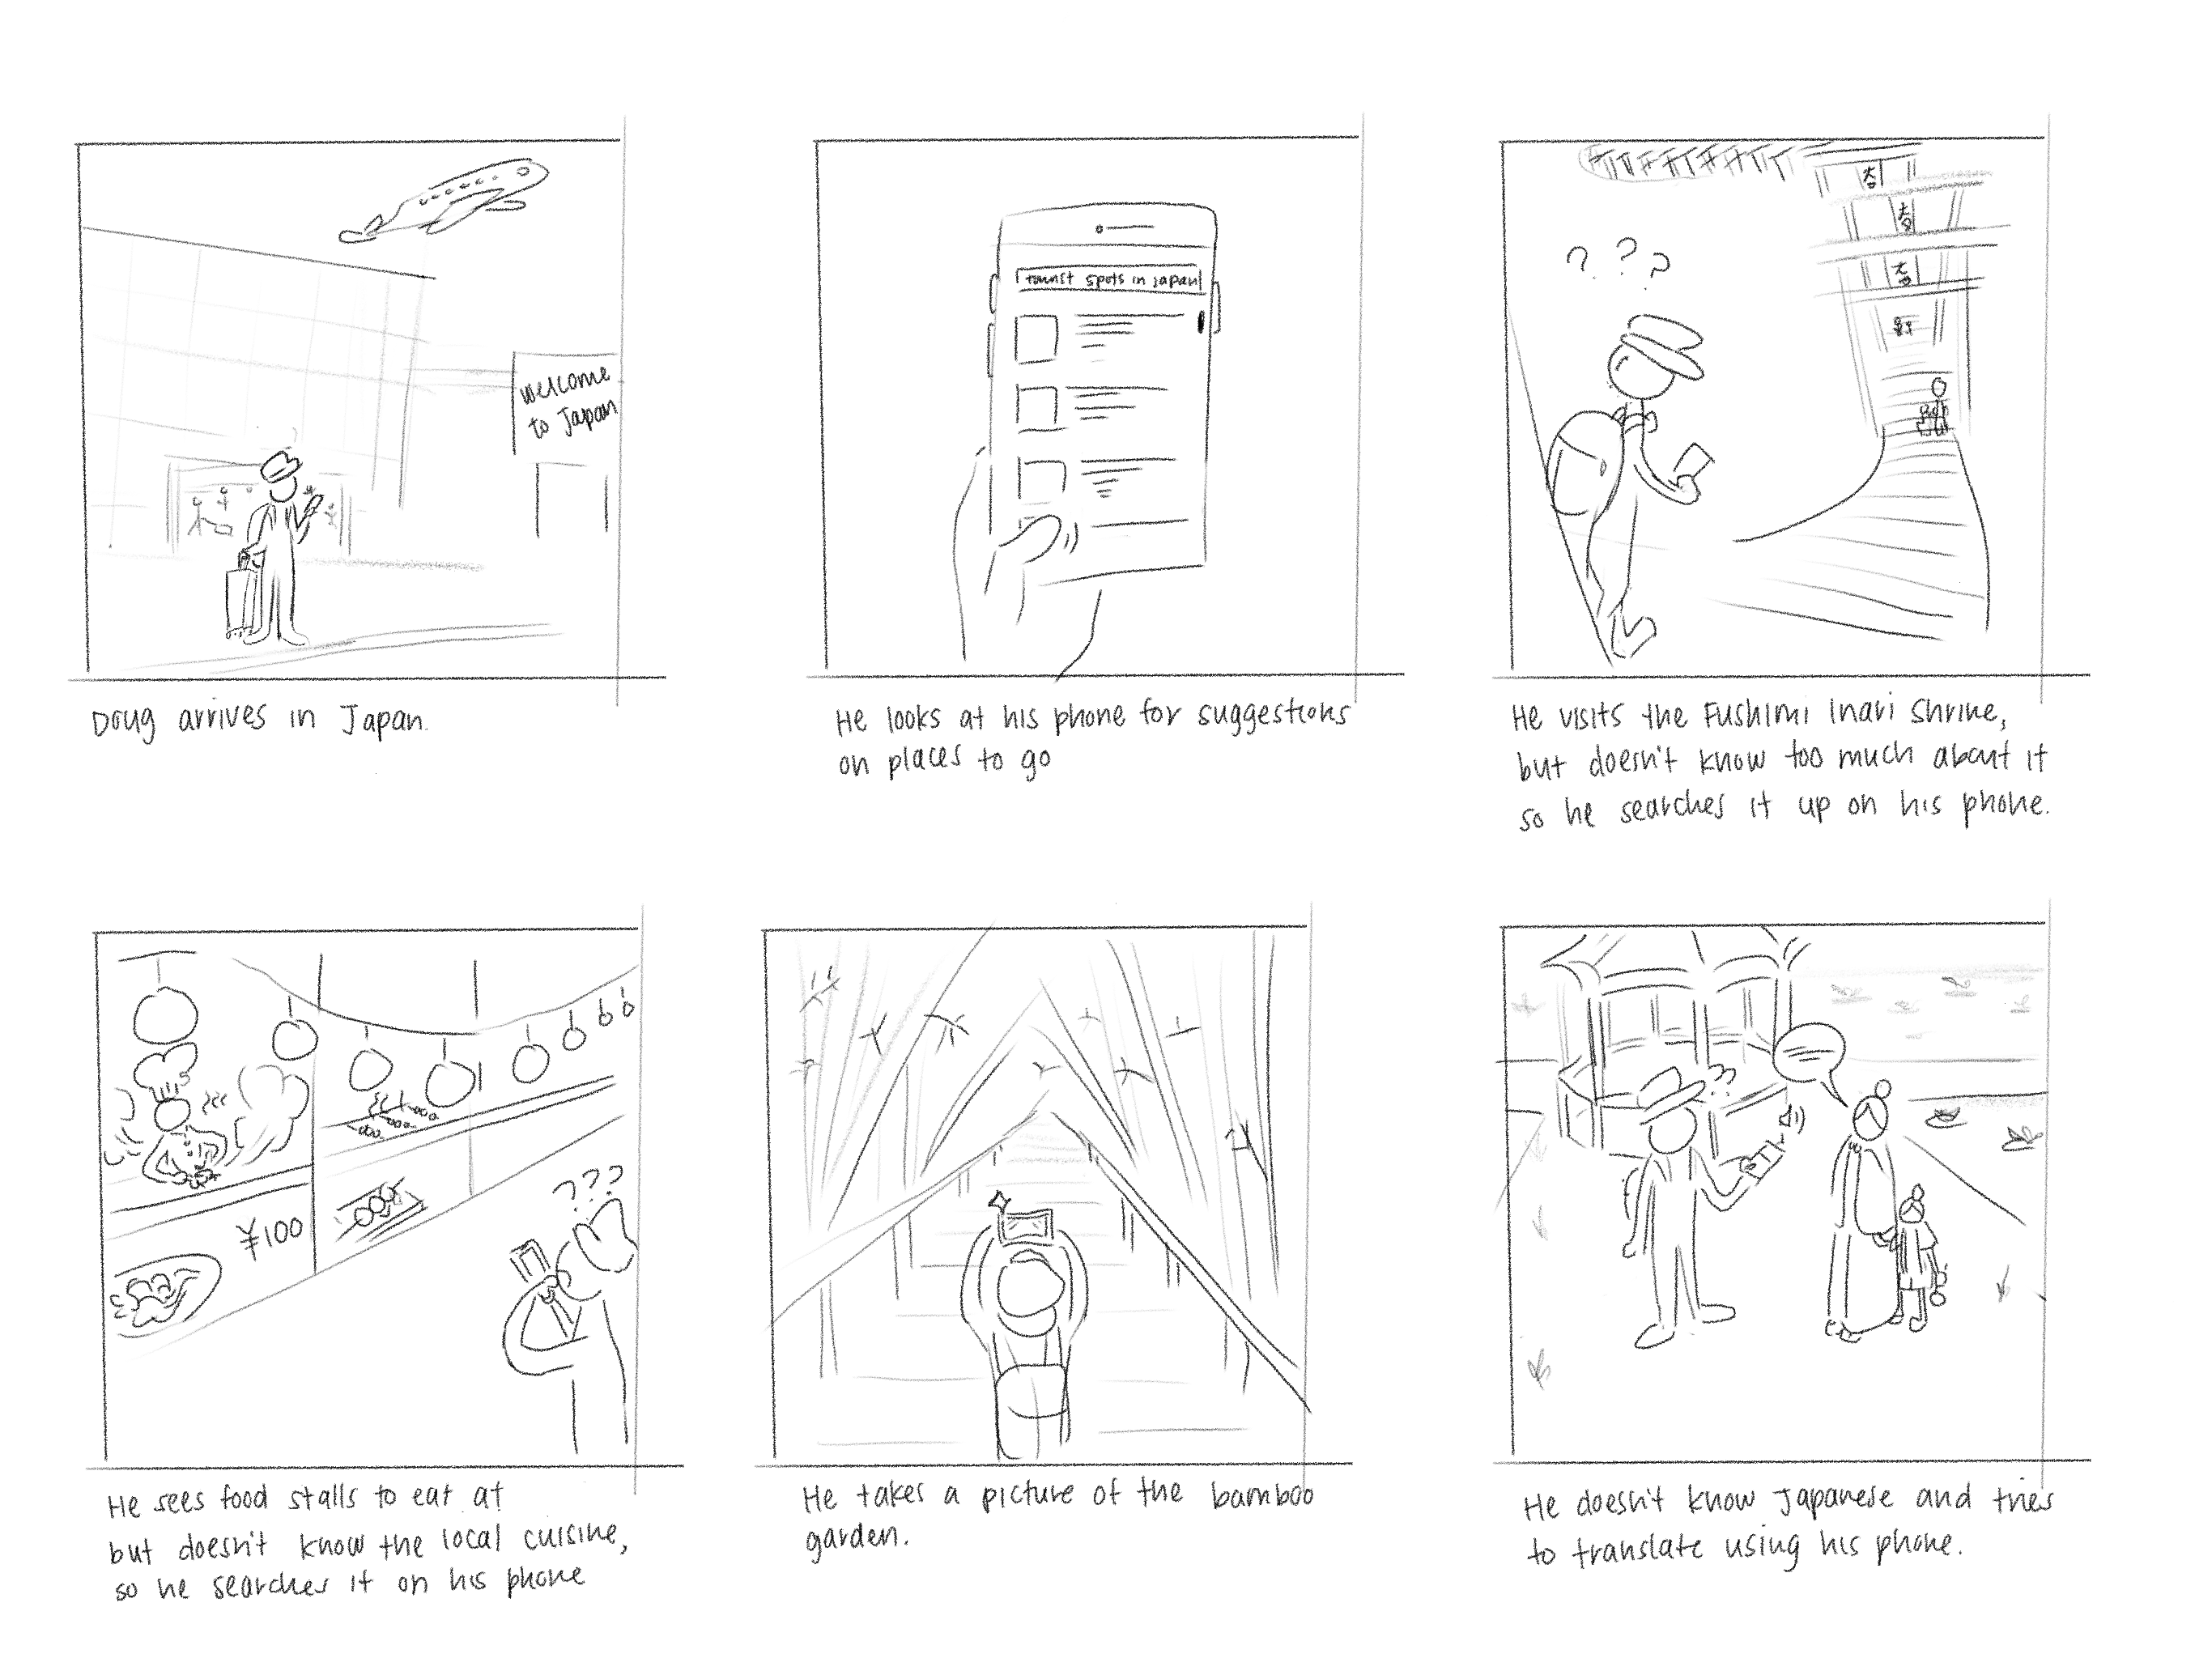 Welcome
to Japan
Doug arrives in Japan.
tourist spots in japan
He looks at his phone for suggestions
on places to go
? ? ?
He visits the Fushimi Inari Shrine,
but doesn't know too much about it
so he searches it up on his phone.
¥100
???
He sees food stalls to eat at
but doesn't know the local cuisine,
so he searches it on his phone
He takes a picture of the bamboo
garden.
??
He doesn't know Japanese and tries
to translate using his phone.